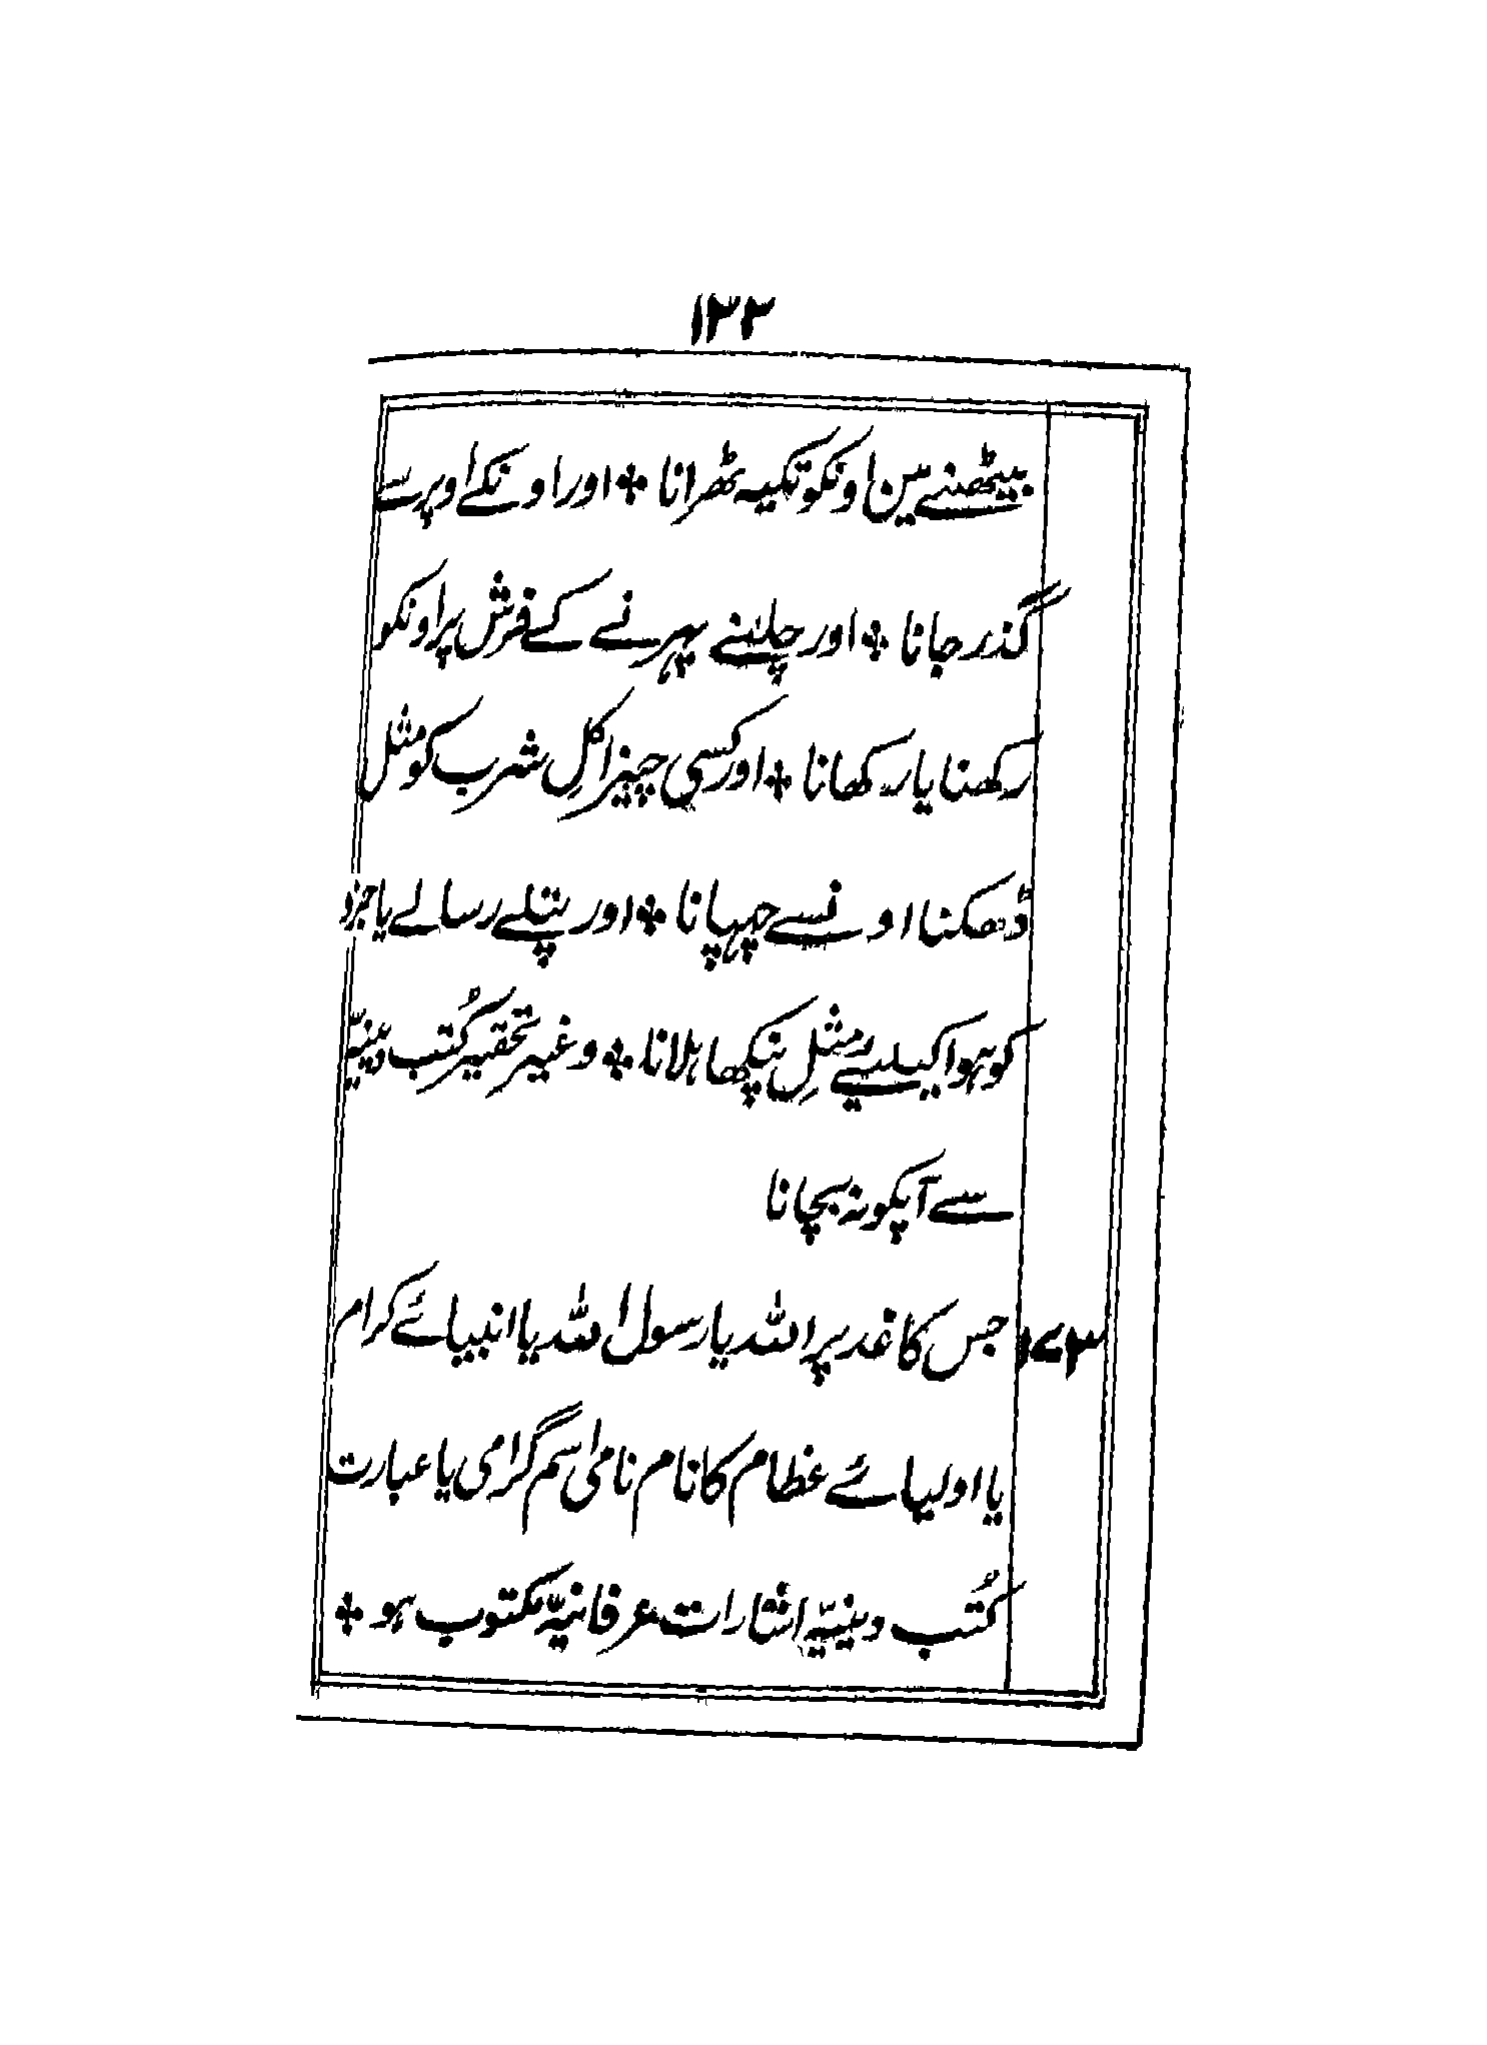 ۱۳۳
بیٹھنے مین اونکو تکیہ ٹھرانا ❖ اور اونکے اوپر سے
گذر جانا ❖ اور چلنے پہرنے کے فرش پر اونکو
رکھنا یا رکھانا ❖ اور کسی چیز اکلِ شرب کو مثل
ڈھکنا اونسے چہپانا ❖ اور پتلے رسالے یا جزو
کو ہوا کیلیے مثلِ پنکھا ہلانا ❖ وغیر تحقیر کُتب دینیّہ
سے آپکو نہ بچانا
۱۷۳ جس کاغد پر اللہ یا رسول اللہ یا انبیائے کرام
یا اولیائے عظام کا نام نامی اسم گرامی یا عبارت
کُتب دینیّہ اشارات عرفانیّہ مکتوب ہو ❖